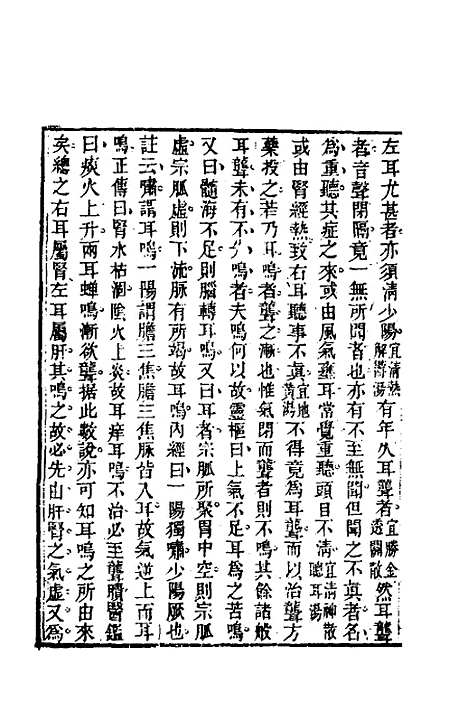 左耳尤甚者亦須淸少陽宜淸熱解鬱湯有年久耳聾者宜勝金透關散然耳聾
者音聲閉隔竟一無所聞者也亦有不至無聞但聞之不眞者名
爲重聽其症之來或由風氣壅耳常覺重聽頭目不淸宜淸神散聽耳湯
或由腎經熱致右耳聽事不眞宜地黃湯不得竟爲耳聾而以治聾方
藥投之若乃耳鳴者聾之漸也惟氣閉而聾者則不鳴其餘諸般
耳聾未有不先鳴者夫鳴何以故靈樞曰上氣不足耳爲之苦鳴
又曰髓海不足則腦轉耳鳴又曰耳者宗脈所聚胃中空則宗脈
虛宗脈虛則下流脈有所竭故耳鳴內經曰一陽獨嘯少陽厥也
註云嘯謂耳鳴一陽謂膽三焦膽三焦脈皆入耳故氣逆上而耳
鳴正傳曰腎水枯涸陰火上炎故耳痒耳鳴不治必至聾聵醫鑑
曰痰火上升兩耳蟬鳴漸欲聾據此數說亦可知耳鳴之所由來
矣總之右耳屬腎左耳屬肝其鳴之故必先由肝腎之氣虛又爲